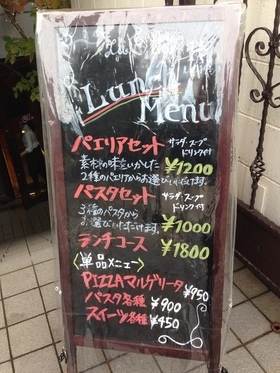 Lunch
Menu
パエリアセット サラダ・スープ
ドリンク付
素材の味をいかした ¥1200
2種のパエリアからお選びいただけます。
パスタセット サラダ・スープ
ドリンク付
3種のパスタから
お選びいただけます。 ¥1000
ランチコース ¥1800
〈単品メニュー〉
PIZZAマルゲリータ ¥950
パスタ各種 ¥900
スイーツ各種 ¥450